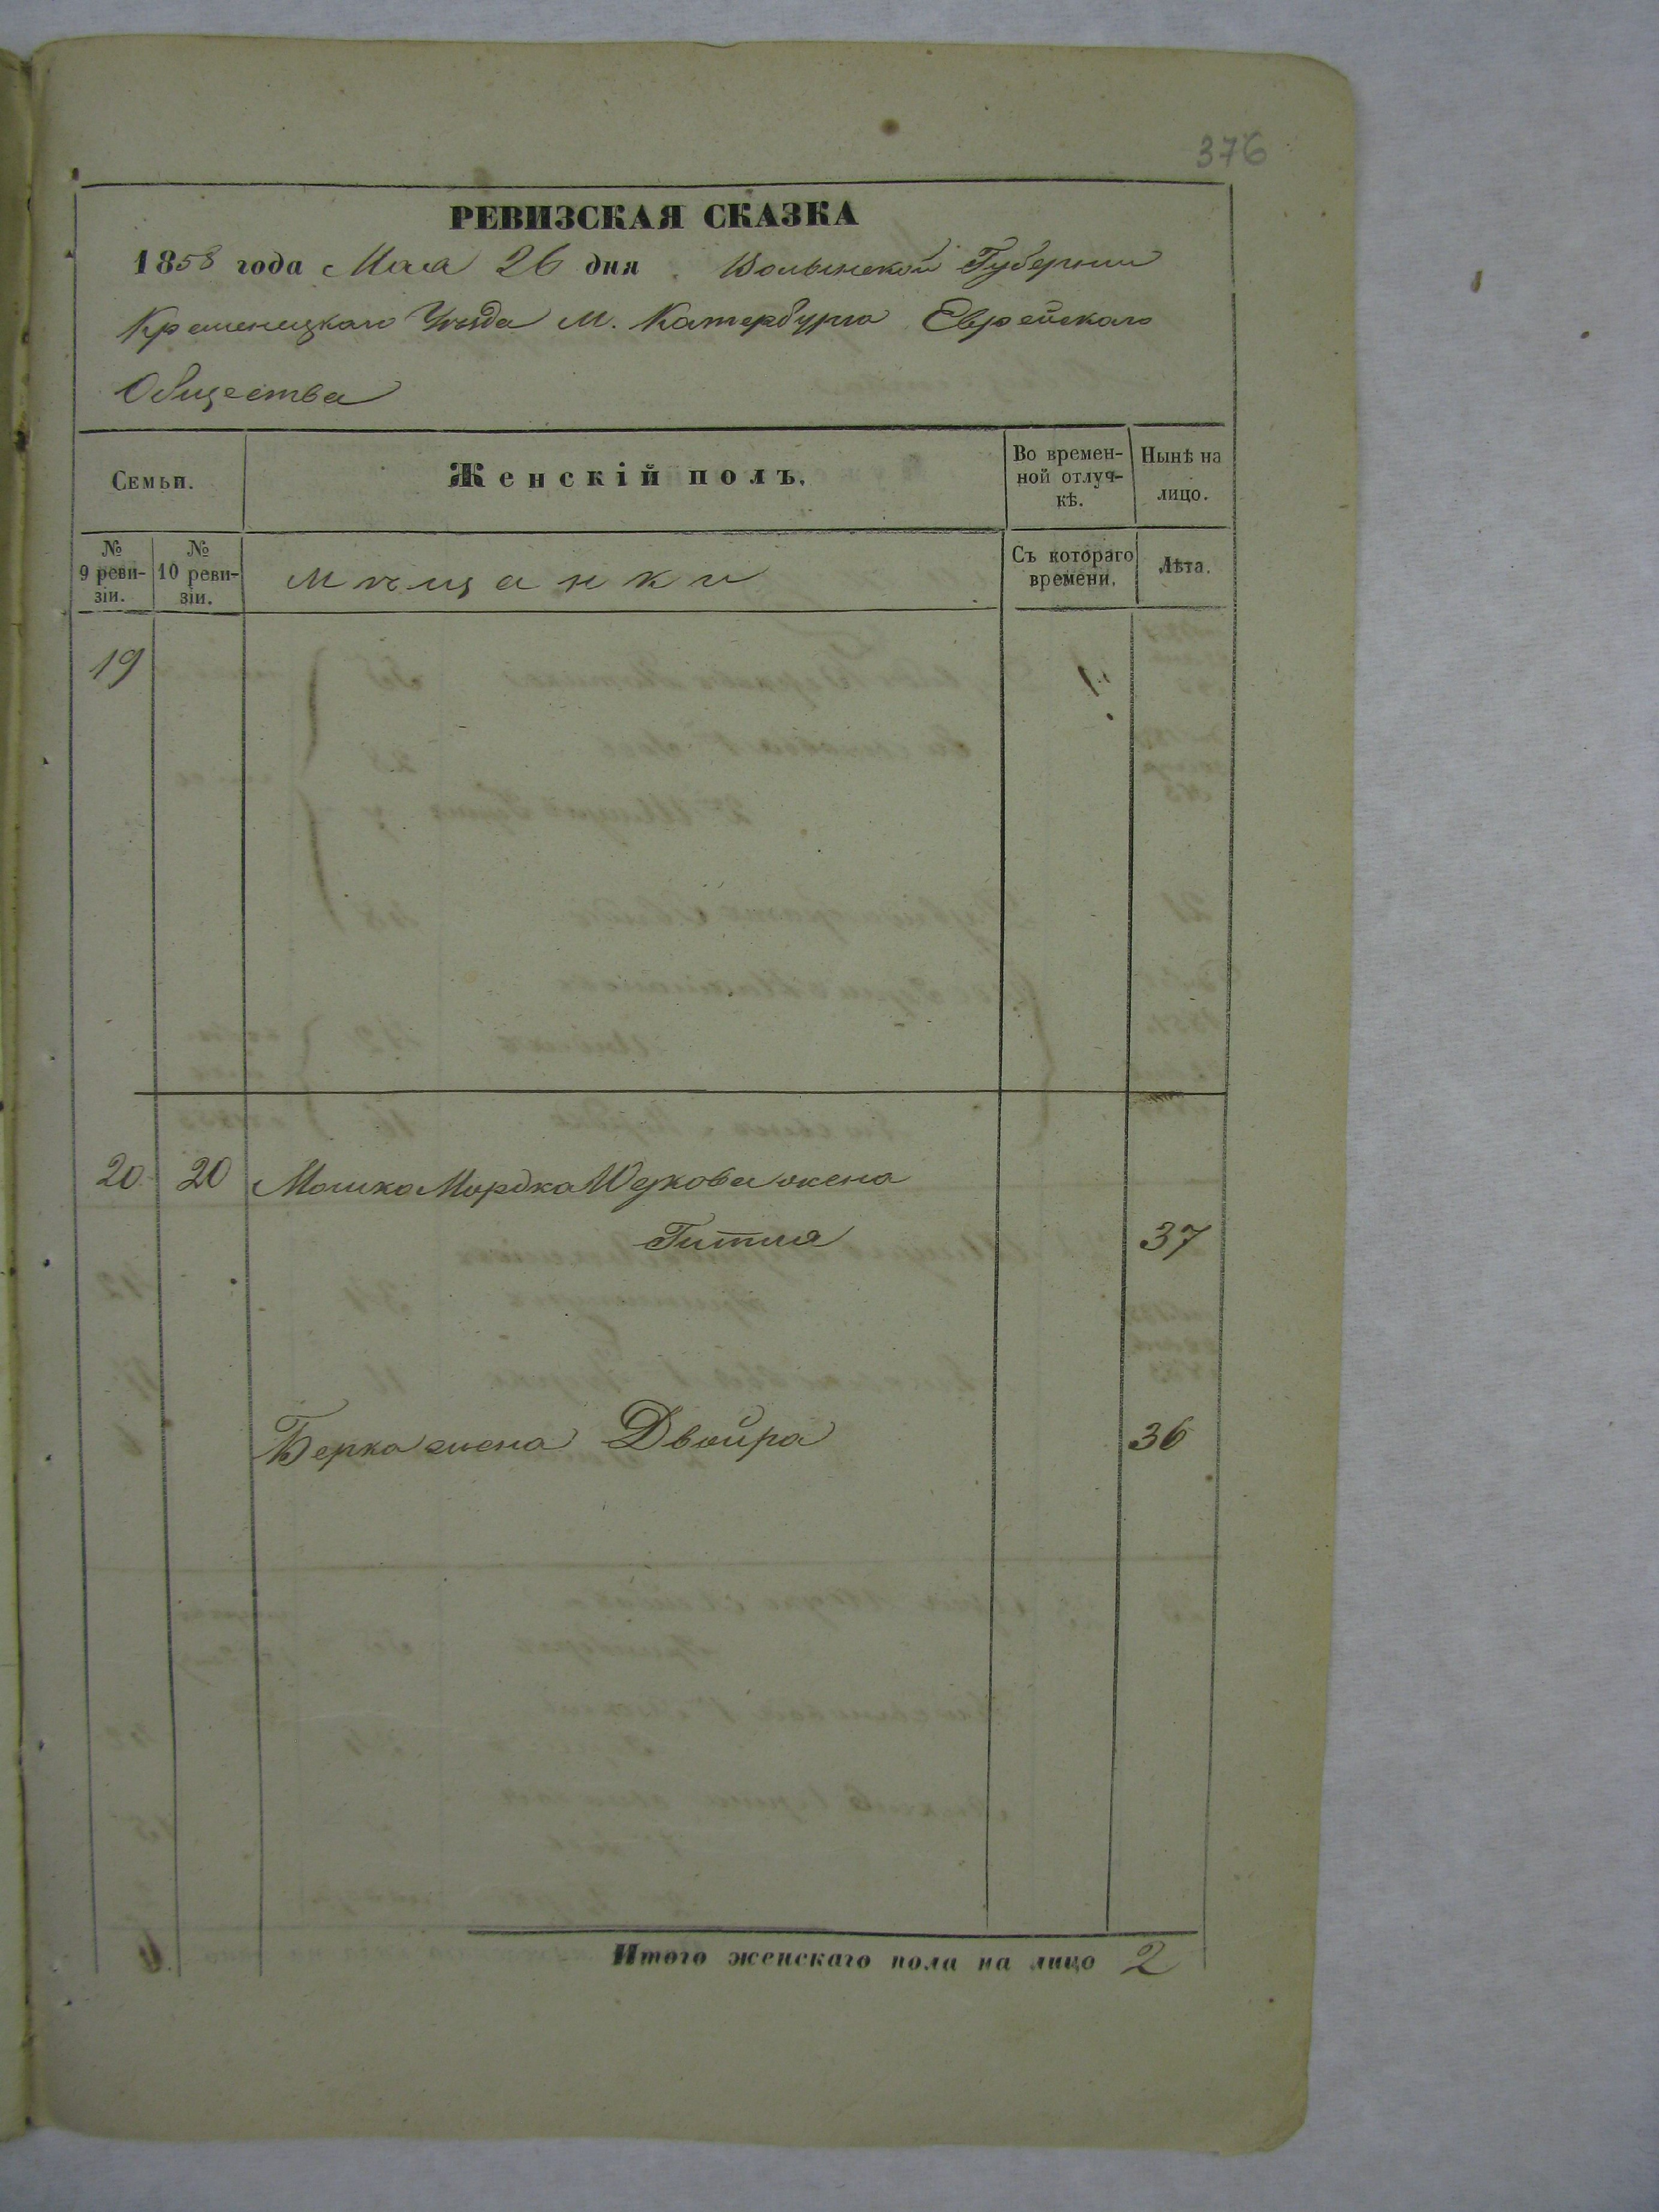 376
РЕВИЗСКАЯ СКАЗКА
1858 года Мая 26 дня. Волынской Губернии
Кременецкаго Уезда М. Катербурга Еврейскаго
Общества
Семьи.
Женскій полъ.
Во времен-
ной отлуч-
кѣ.
Нынѣ на
лицо.
№
9 реви-
зіи.
№
10 реви-
зіи.
мѣщанки
Съ котораго
времени.
Лѣта.
19
20 20 Мошко Мордка жена
Гитля 37
Берка жена Двойра 36
Итого женскаго пола на лицо 2